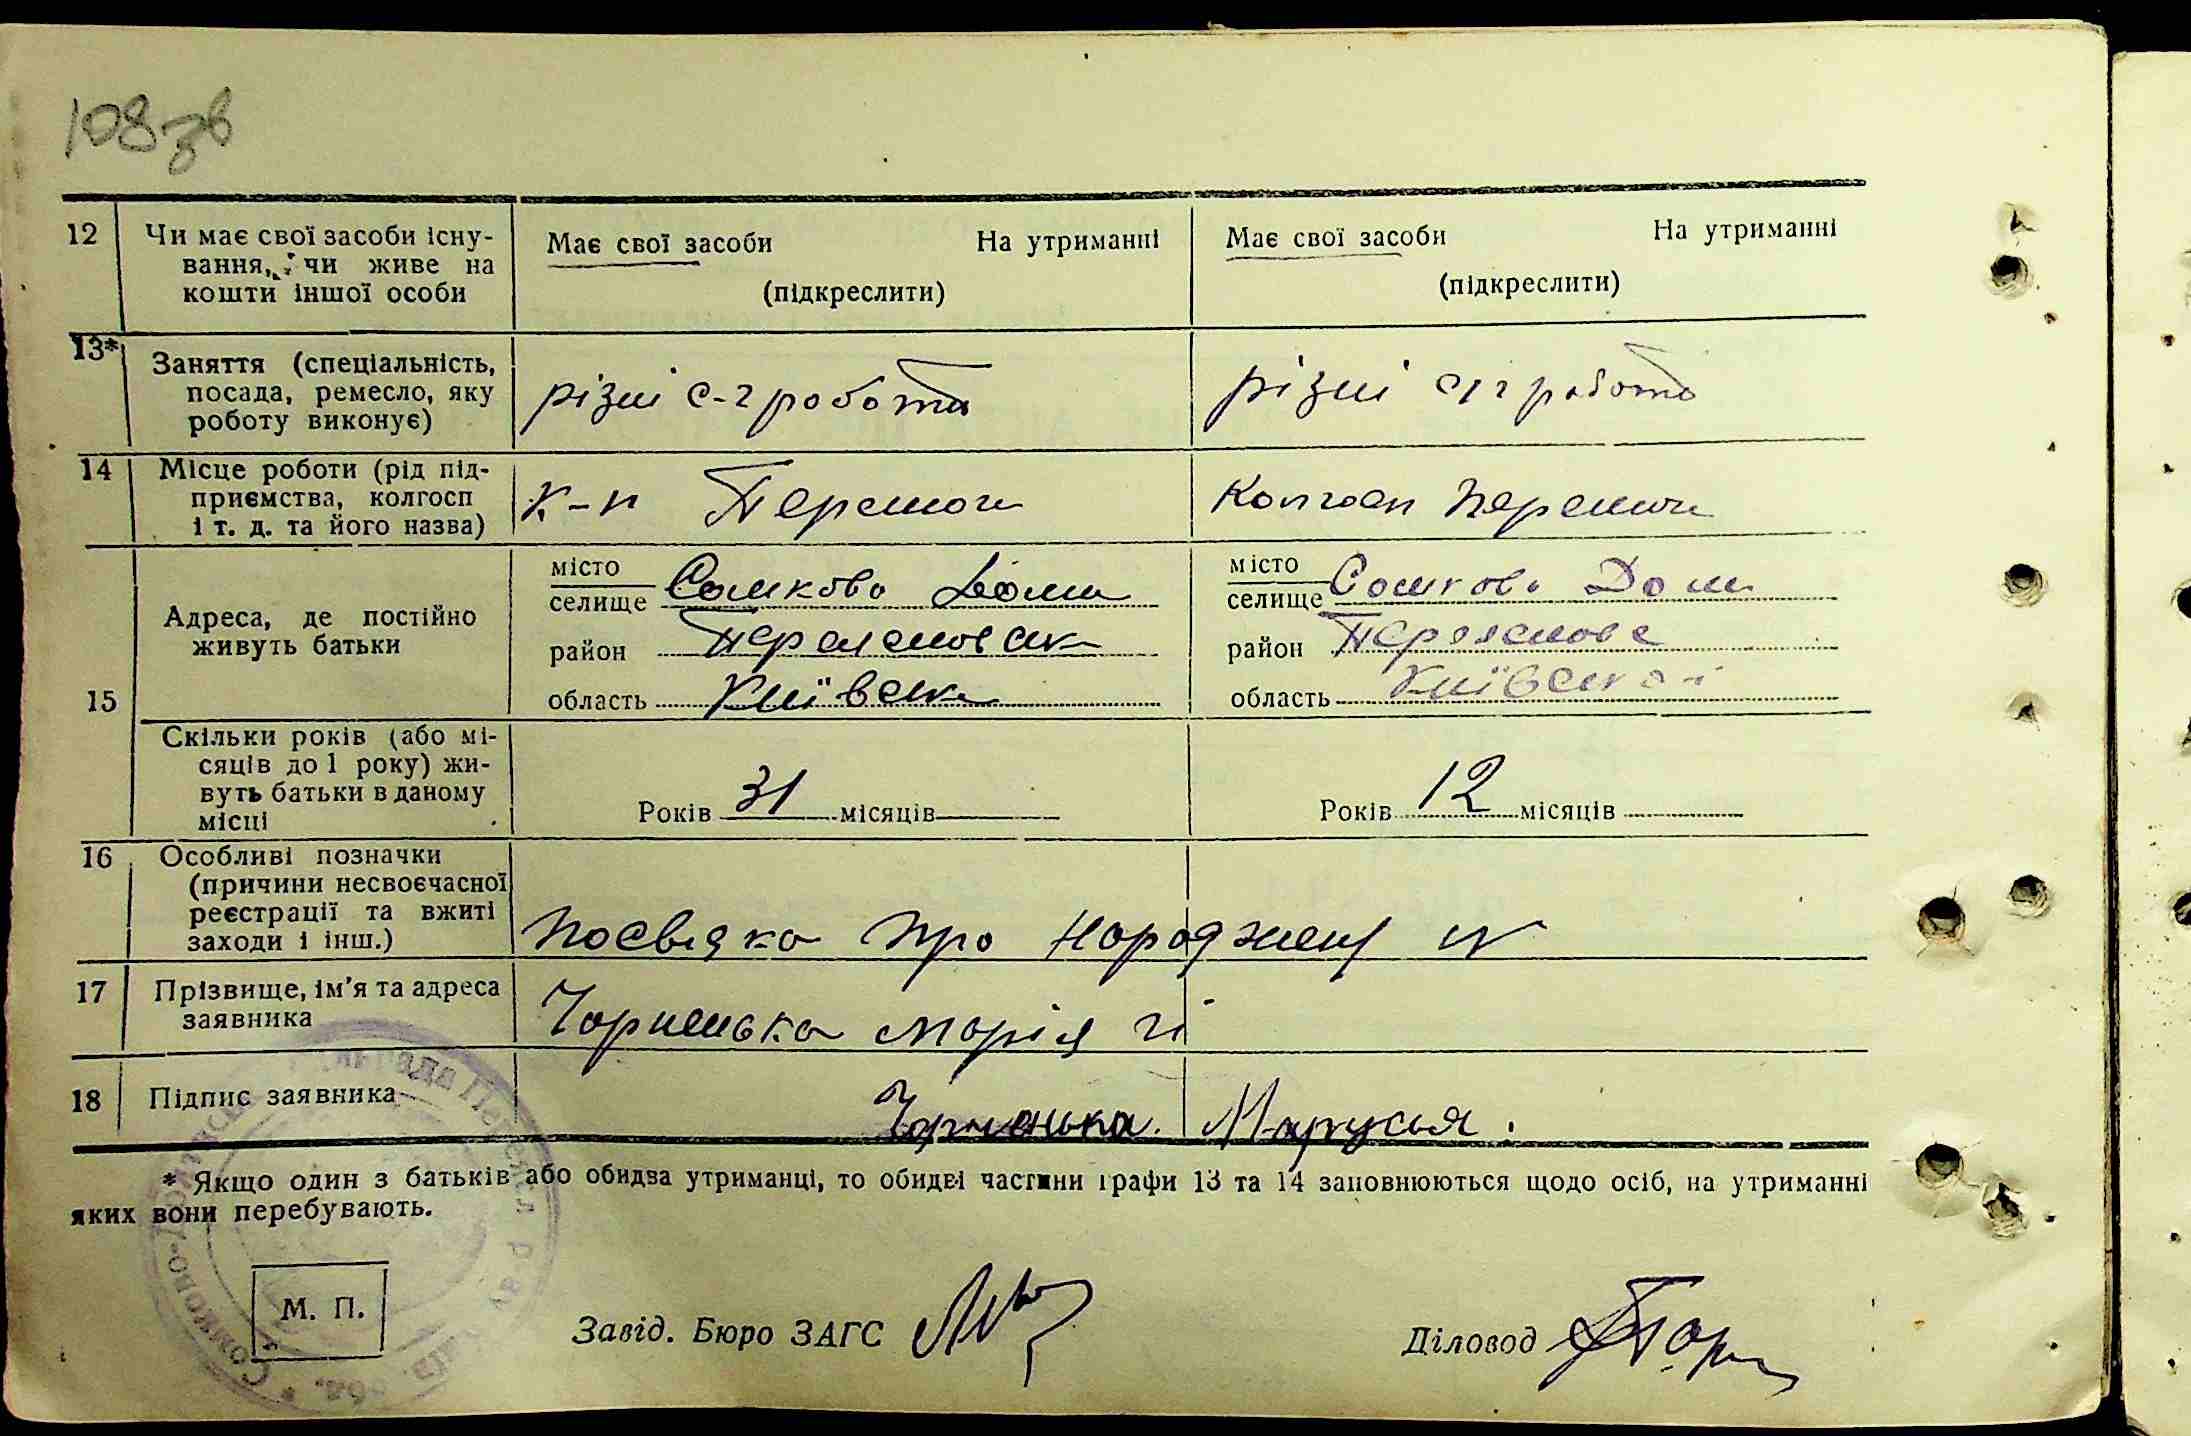 108зв
12 Чи має свої засоби існу-
вання, чи живе на
кошти іншої особи
Має свої засоби На утриманні
(підкреслити)
Має свої засоби На утриманні
(підкреслити)
13* Заняття (спеціальність,
посада, ремесло, яку
роботу виконує)
різні с-г роботи
різні с/г роботи
14 Місце роботи (рід під-
приємства, колгосп
і т. д. та його назва)
к-п Перемоги
Колгосп Перемоги
15 Адреса, де постійно
живуть батьки
місто
селище Сомково Доли
район
область Київськ
місто
селище Сомково Доли
район
область Київської
Скільки років (або мі-
сяців до 1 року) жи-
вуть батьки в даному
місці
Років 31 місяців
Років 12 місяців
16 Особливі позначки
(причини несвоєчасної
реєстрації та вжиті
заходи і інш.)
Посвідка про народжен №
17 Прізвище, ім'я та адреса
заявника
Чорненька Марія
18 Підпис заявника
Чорненька Марусья.
* Якщо один з батьків або обидва утриманці, то обидві частини графи 13 та 14 заповнюються щодо осіб, на утриманні
яких вони перебувають.
М. П.
Завід. Бюро ЗАГС
Діловод